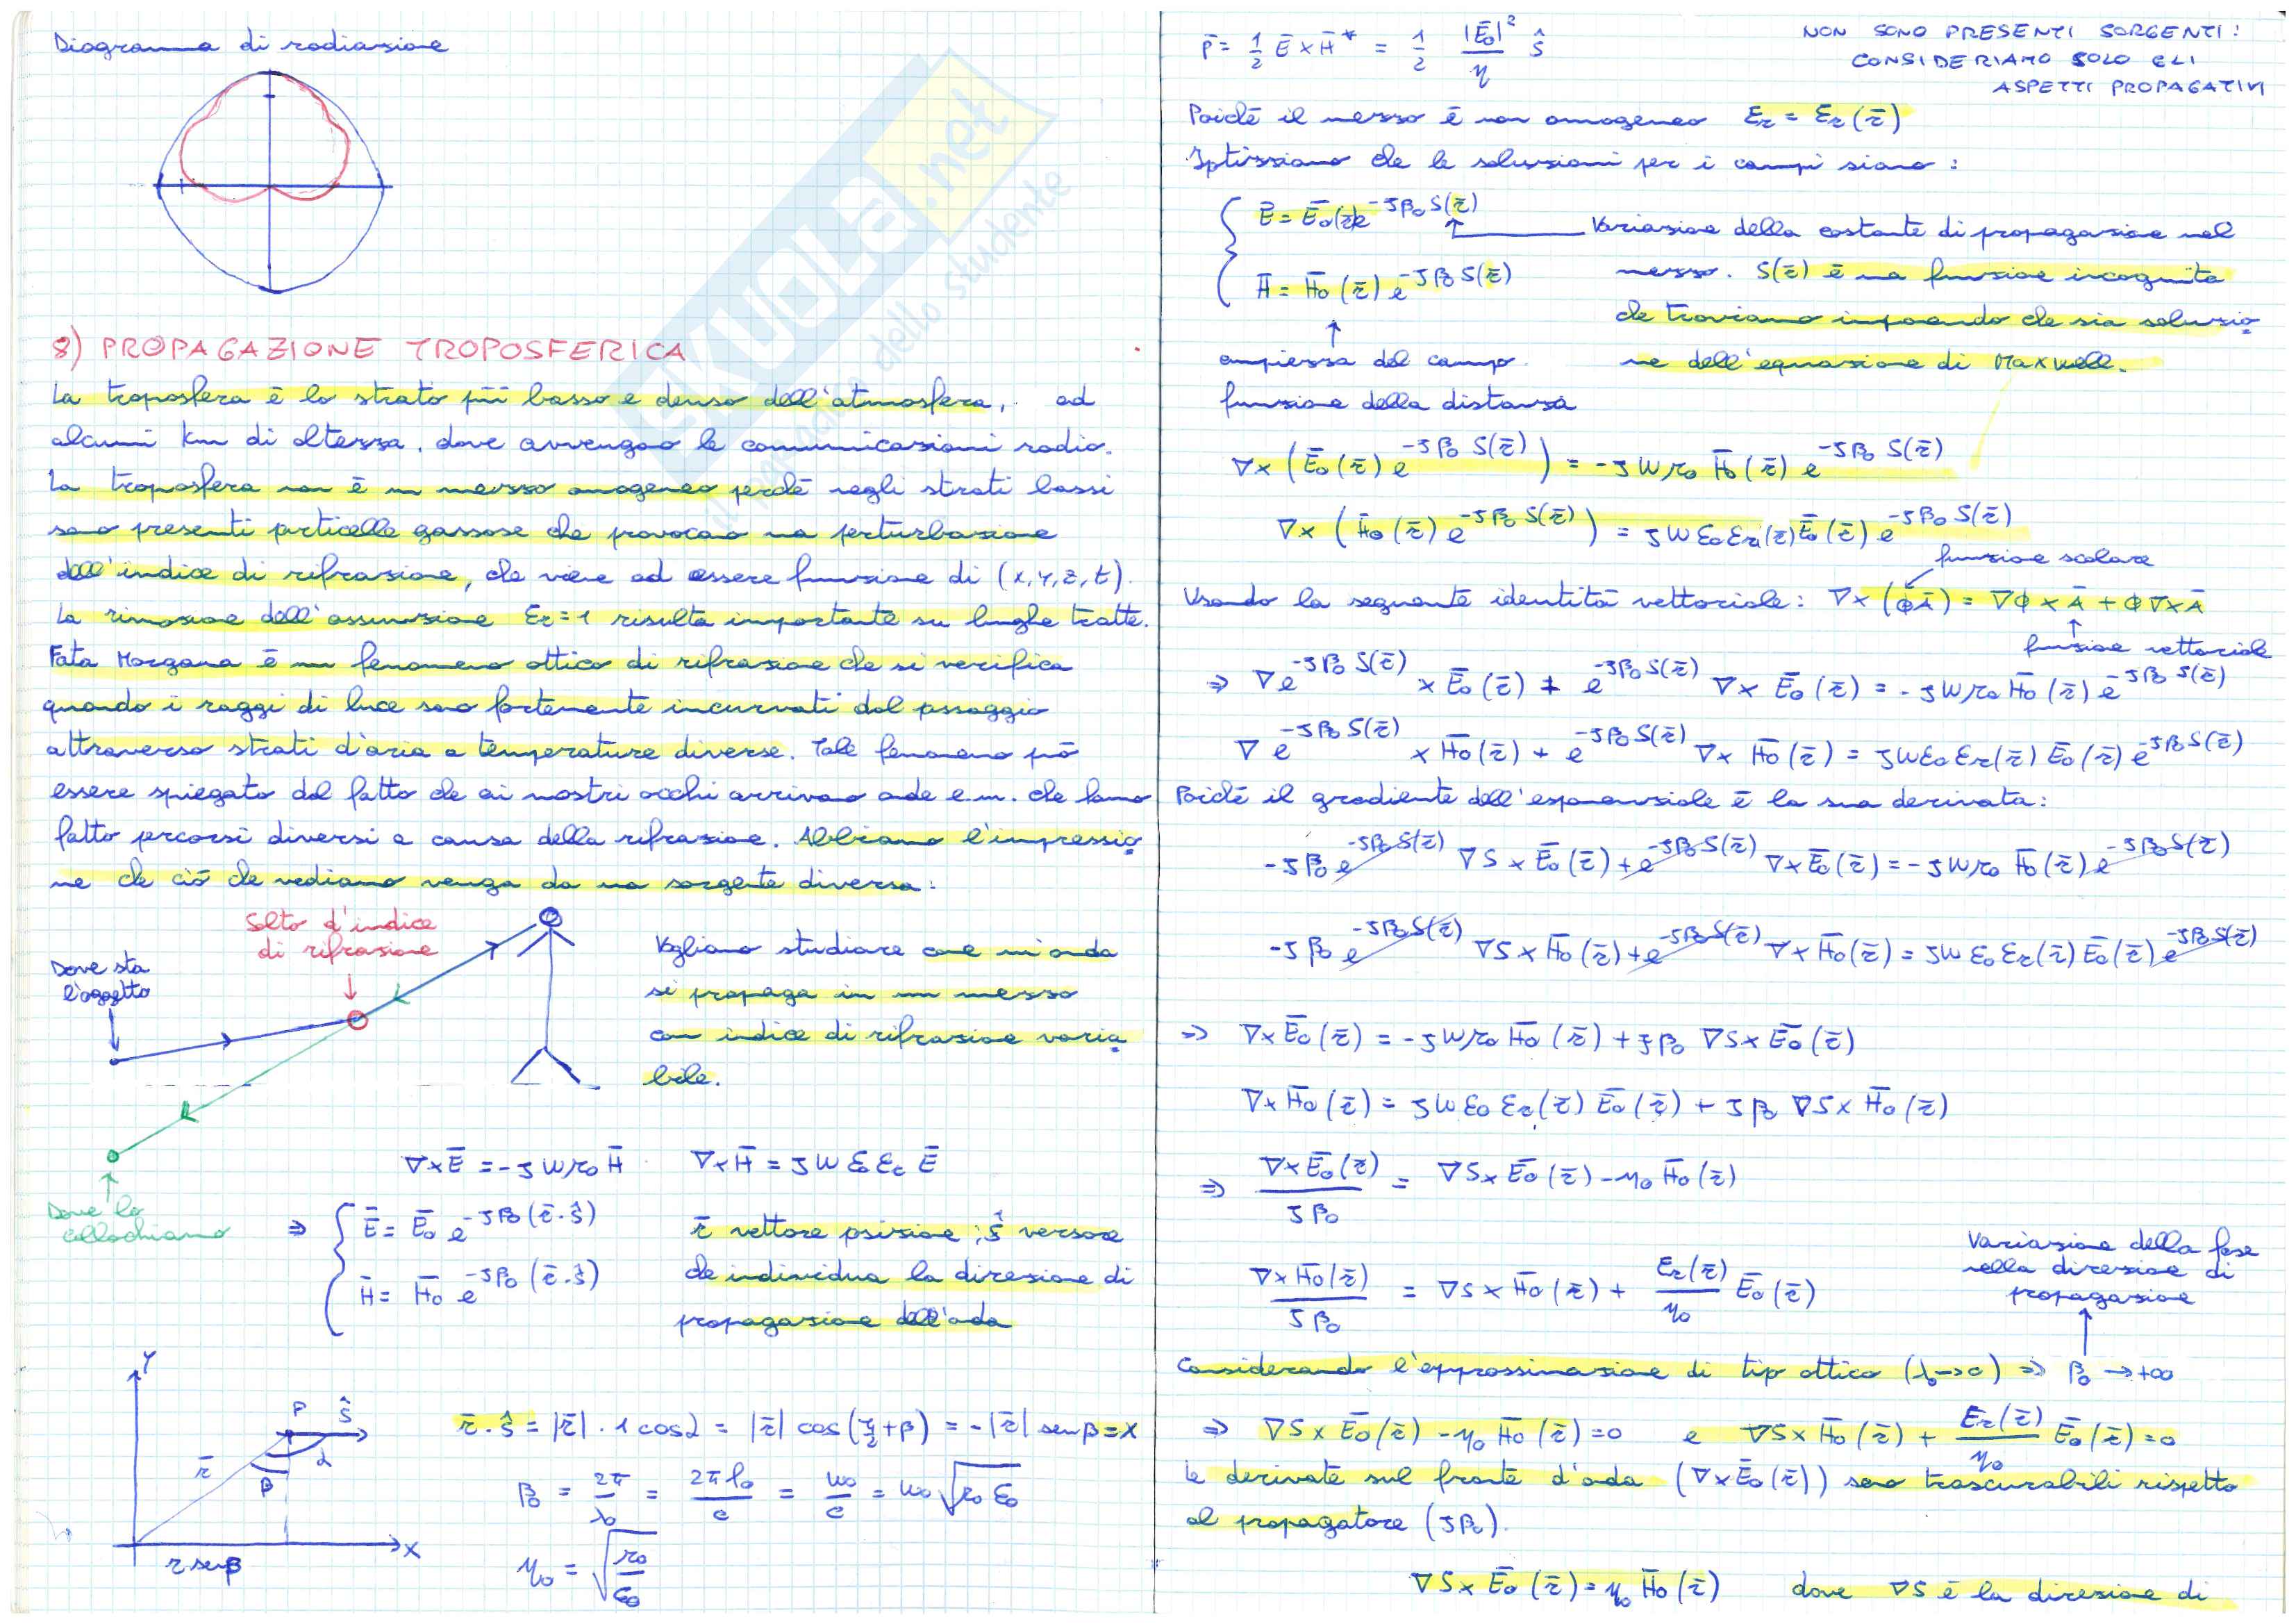 Diagramma di radiazione
8) PROPAGAZIONE TROPOSFERICA
La troposfera è lo strato più basso e denso dell'atmosfera, ad
alcuni km di altezza, dove avvengono le comunicazioni radio.
La troposfera non è un mezzo omogeneo perché negli strati bassi
sono presenti particelle gassose che provocano una perturbazione
dell'indice di rifrazione, che viene ad essere funzione di (x,y,z,t).
La rimozione dell'assunzione εr=1 risulta importante su lunghe tratte.
Fata Morgana è un fenomeno ottico di rifrazione che si verifica
quando i raggi di luce sono fortemente incurvati dal passaggio
attraverso strati d'aria a temperature diverse. Tale fenomeno può
essere spiegato dal fatto che ai nostri occhi arrivano onde e.m. che hanno
fatto percorsi diversi a causa della rifrazione. Abbiamo l'impressio
ne che ciò che vediamo venga da una sorgente diversa:
Salto d'indice
di rifrazione
Dove sta
l'oggetto
Dove lo
collochiamo
Vogliamo studiare come un'onda
si propaga in un mezzo
con indice di rifrazione varia
bile.
∇×Ē = -jωμ₀H̄   ∇×H̄ = jωε₀εr Ē
⇒ { Ē = Ē₀ e^{-jβ₀(r̄·ŝ)}
H̄ = H̄₀ e^{-jβ₀(r̄·ŝ)}
r̄ vettore posizione; ŝ versore
che individua la direzione di
propagazione dell'onda
Y
P ŝ
r̄ β α
X
r senβ
r̄·ŝ = |r̄|·1 cosα = |r̄| cos(π/2+β) = -|r̄| senβ = x
β₀ = 2π/λ₀ = 2πf₀/c = ω₀/c = ω₀√(μ₀ε₀)
η₀ = √(μ₀/ε₀)
P̄ = 1/2 Ē×H̄* = 1/2 |Ē₀|²/η ŝ
NON SONO PRESENTI SORGENTI:
CONSIDERIAMO SOLO GLI
ASPETTI PROPAGATIVI
Poiché il mezzo è non omogeneo εr = εr(r̄)
Ipotizziamo che le soluzioni per i campi siano:
{ Ē = Ē₀(r̄)e^{-jβ₀S(r̄)}
H̄ = H̄₀(r̄) e^{-jβ₀S(r̄)}
Variazione della costante di propagazione nel
mezzo. S(r̄) è una funzione incognita
che troviamo imponendo che sia soluzio
ne dell'equazione di Maxwell.
ampiezza del campo
funzione della distanza
∇×(Ē₀(r̄) e^{-jβ₀S(r̄)}) = -jωμ₀ H̄₀(r̄) e^{-jβ₀S(r̄)}
∇×(H̄₀(r̄) e^{-jβ₀S(r̄)}) = jωε₀εr(r̄)Ē₀(r̄) e^{-jβ₀S(r̄)}
funzione scalare
Usando la seguente identità vettoriale: ∇×(ϕĀ) = ∇ϕ×Ā + ϕ∇×Ā
funzione vettoriale
⇒ ∇e^{-jβ₀S(r̄)} × Ē₀(r̄) + e^{-jβ₀S(r̄)} ∇×Ē₀(r̄) = -jωμ₀H̄₀(r̄) e^{-jβ₀S(r̄)}
∇e^{-jβ₀S(r̄)} × H̄₀(r̄) + e^{-jβ₀S(r̄)} ∇×H̄₀(r̄) = jωε₀εr(r̄) Ē₀(r̄) e^{-jβ₀S(r̄)}
Poiché il gradiente dell'esponenziale è la sua derivata:
-jβ₀e^{-jβ₀S(r̄)} ∇S×Ē₀(r̄) + e^{-jβ₀S(r̄)} ∇×Ē₀(r̄) = -jωμ₀ H̄₀(r̄) e^{-jβ₀S(r̄)}
-jβ₀e^{-jβ₀S(r̄)} ∇S×H̄₀(r̄) + e^{-jβ₀S(r̄)} ∇×H̄₀(r̄) = jωε₀εr(r̄) Ē₀(r̄) e^{-jβ₀S(r̄)}
⇒ ∇×Ē₀(r̄) = -jωμ₀H̄₀(r̄) + jβ₀ ∇S×Ē₀(r̄)
∇×H̄₀(r̄) = jωε₀εr(r̄) Ē₀(r̄) + jβ₀ ∇S×H̄₀(r̄)
⇒ ∇×Ē₀(r̄)/jβ₀ = ∇S×Ē₀(r̄) - η₀H̄₀(r̄)
∇×H̄₀(r̄)/jβ₀ = ∇S×H̄₀(r̄) + εr(r̄)/η₀ Ē₀(r̄)
Variazione della fase
nella direzione di
propagazione
Considerando l'approssimazione di tipo ottico (λ₀→0) ⇒ β₀→+∞
⇒ ∇S×Ē₀(r̄) - η₀H̄₀(r̄) = 0 e ∇S×H̄₀(r̄) + εr(r̄)/η₀ Ē₀(r̄) = 0
le derivate sul fronte d'onda (∇×Ē₀(r̄)) sono trascurabili rispetto
al propagatore (jβ₀).
∇S×Ē₀(r̄) = η₀H̄₀(r̄) dove ∇S è la direzione di
SKUOLA.net